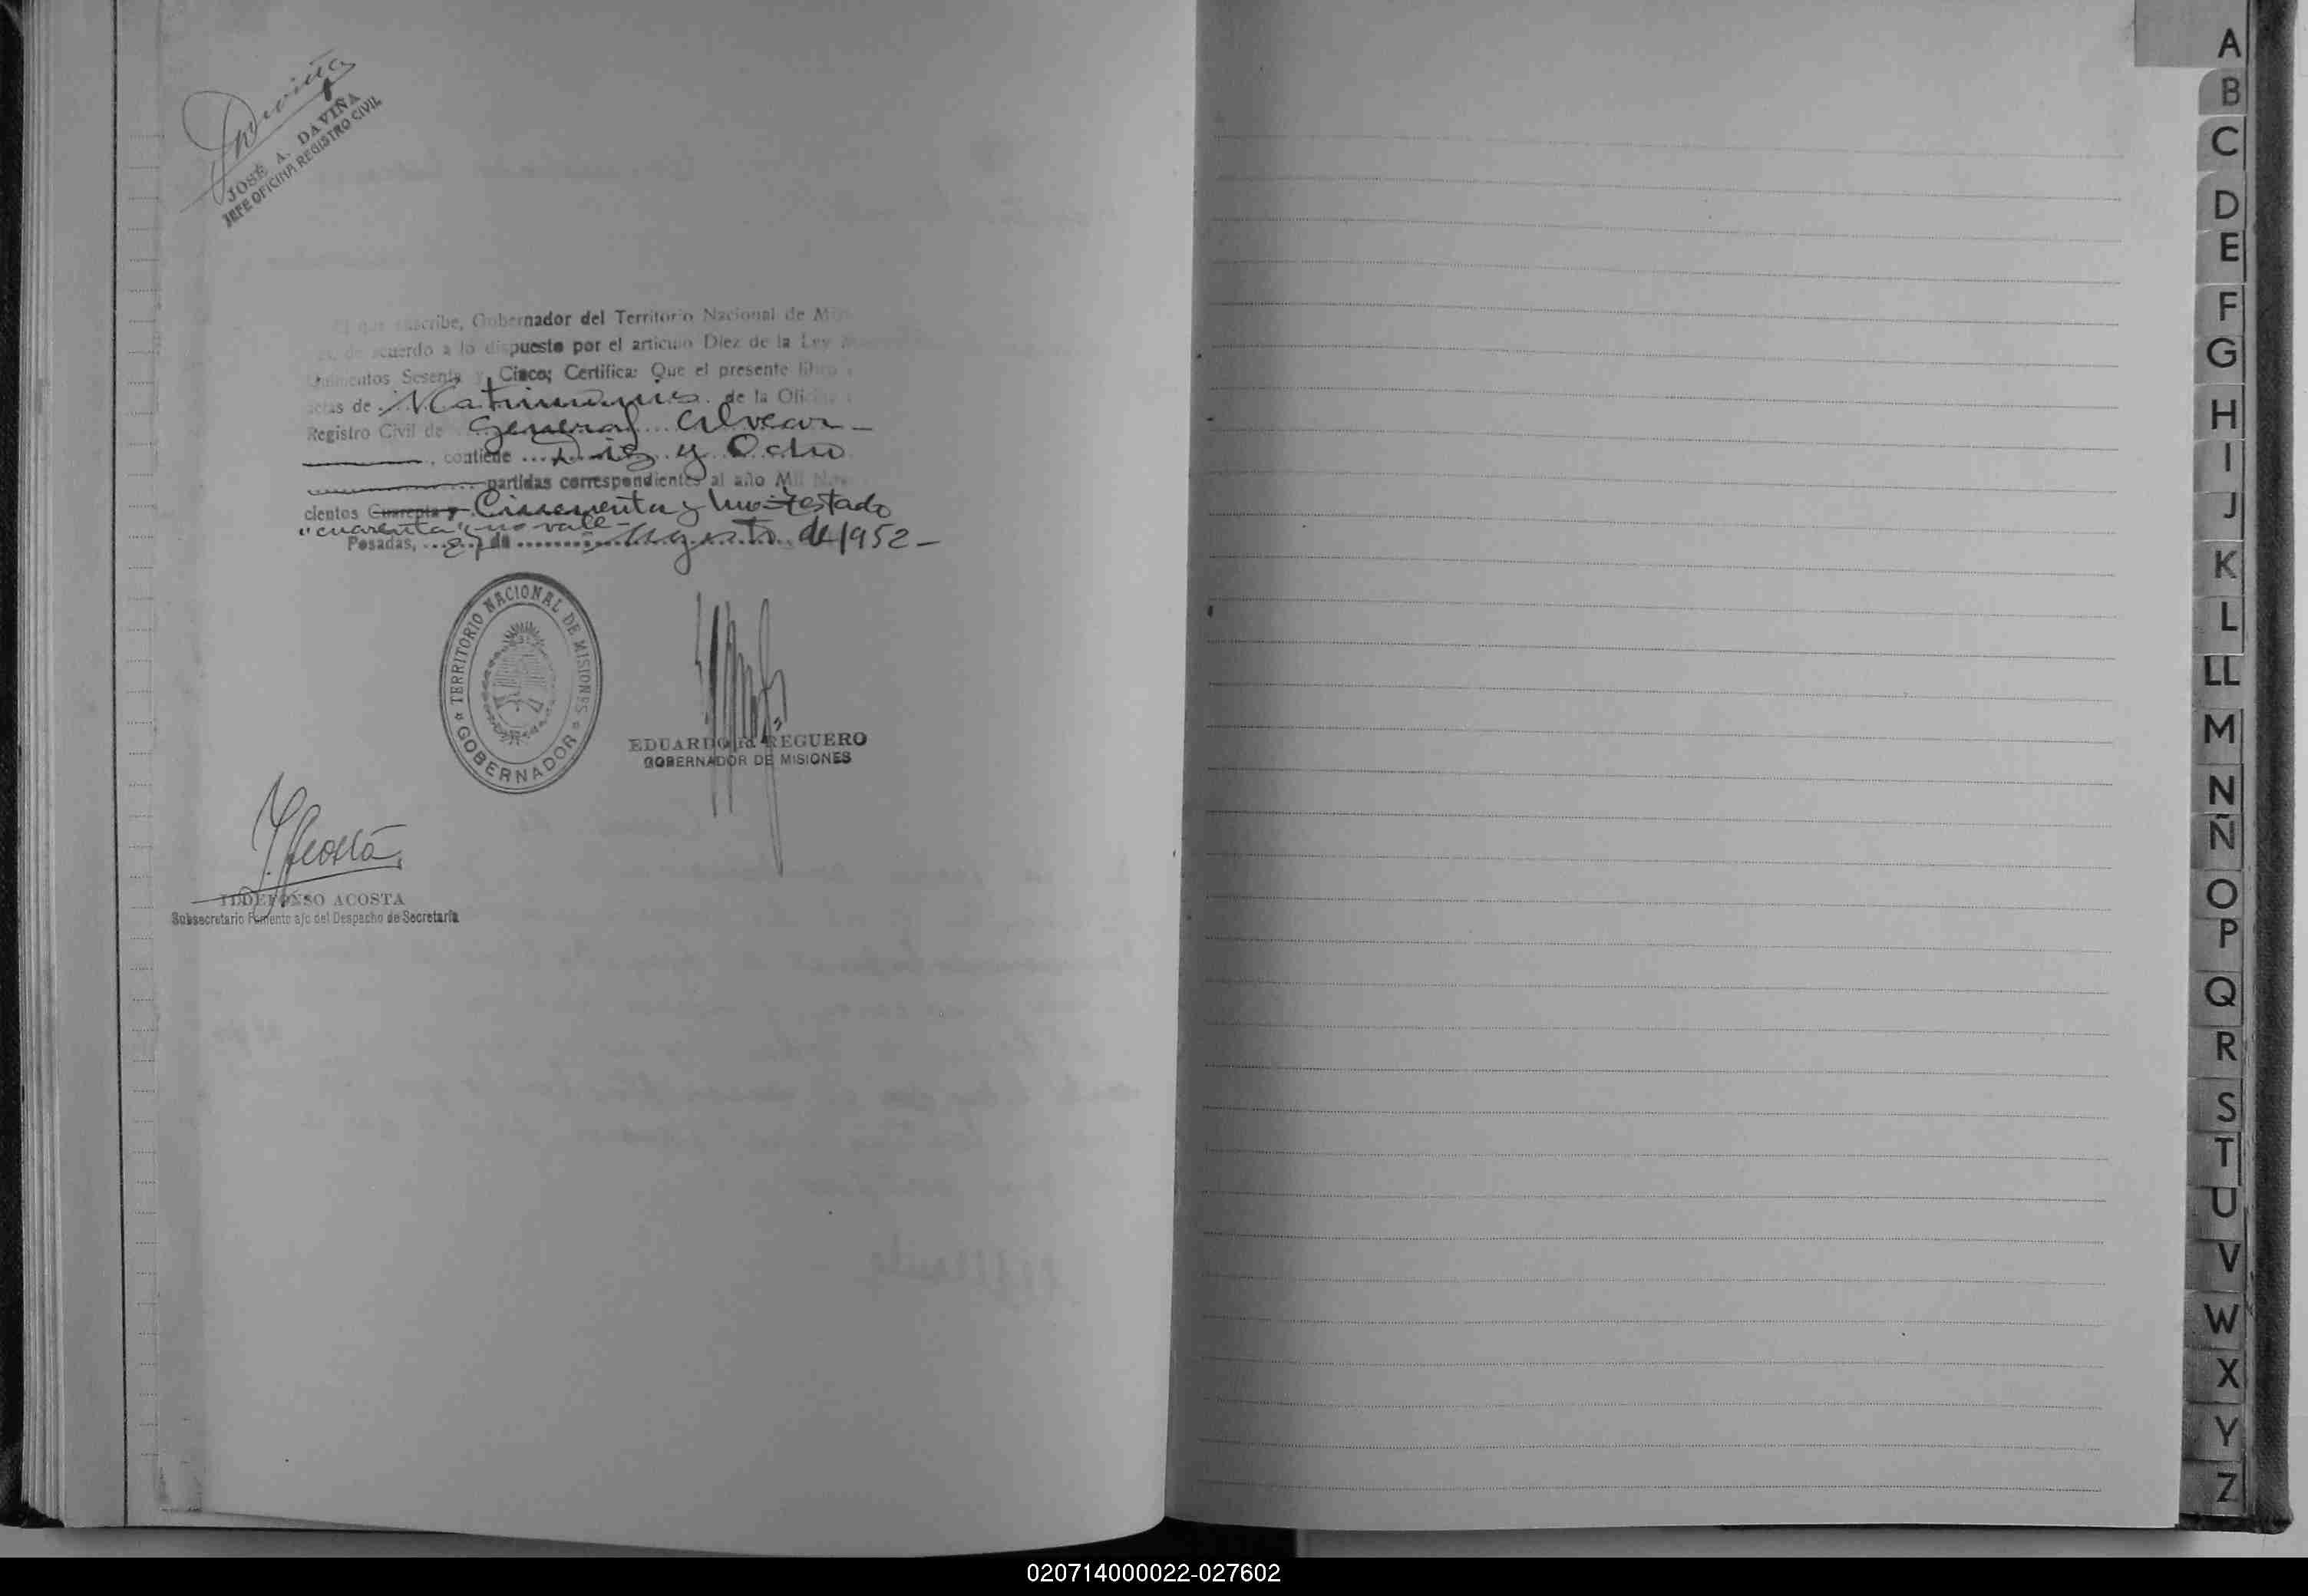 Daviña
JOSÉ A. DAVIÑA
JEFE OFICINA REGISTRO CIVIL
El que suscribe, Gobernador del Territorio Nacional de Mi
de acuerdo a lo dispuesto por el artículo Diez de la Ley
Sesenta y Cinco; Certifica: Que el presente libro
actas de Matrimonios de la Ofi
Registro Civil de General Alvear –
, contiene Diez y Ocho
partidas correspondientes al año Mil
cientos Cuarenta y Cincuenta y Uno-testado
"cuarenta" no vale –
Posadas, de Agosto de 1952 –
TERRITORIO NACIONAL DE MISIONES
GOBERNADOR
EDUARDO REGUERO
GOBERNADOR DE MISIONES
Acosta
ILDEFONSO ACOSTA
Subsecretario Fomento a/c del Despacho de Secretaría
A
B
C
D
E
F
G
H
I
J
K
L
LL
M
N
Ñ
O
P
Q
R
S
T
U
V
W
X
Y
Z
020714000022-027602